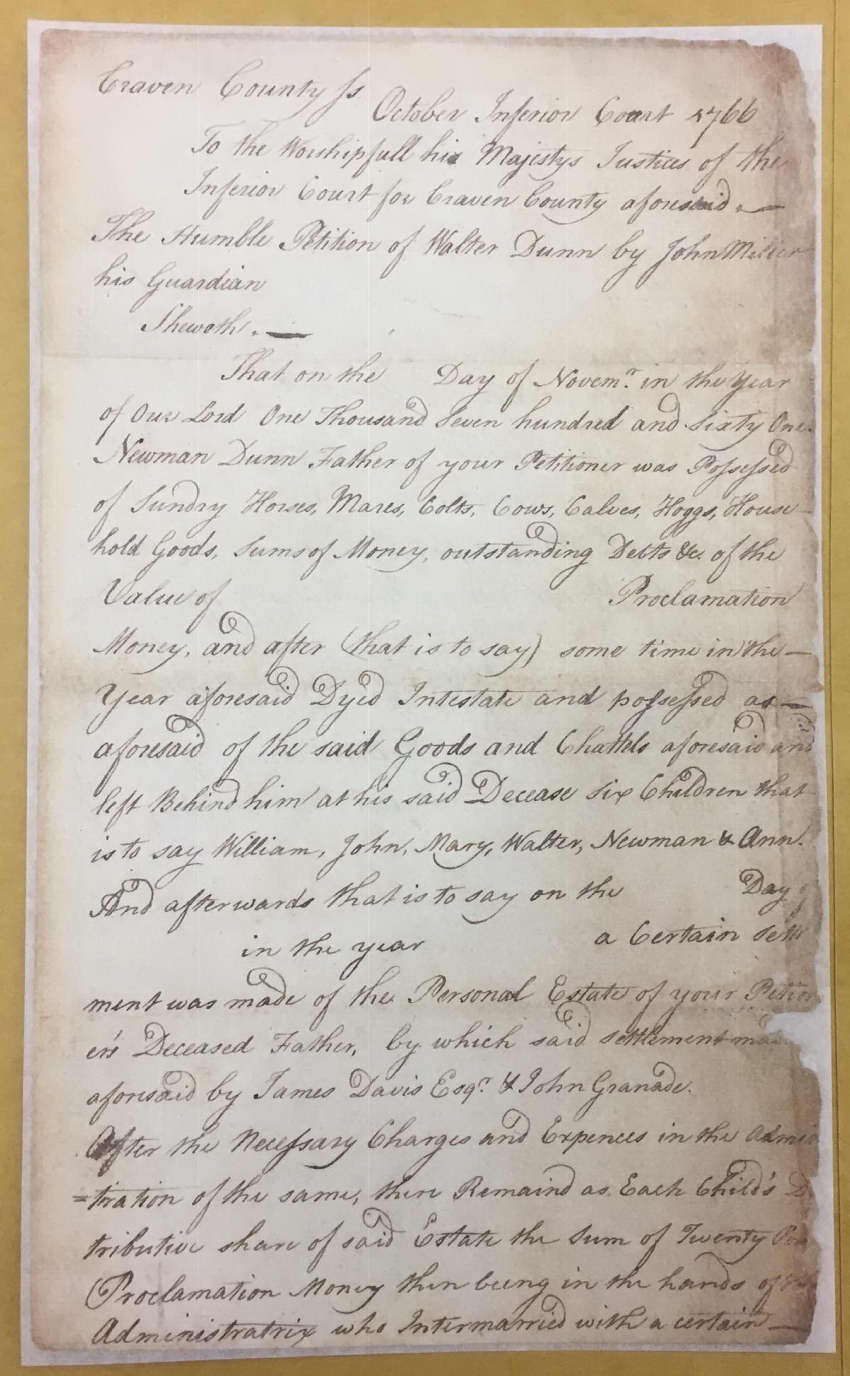 Craven County Ss
October Inferior Court 1766
To the Worshipfull his Majestys Justices of the
Inferior Court for Craven County aforesaid. —
The Humble Petition of Walter Dunn by John Miller
his Guardian
Sheweth. —
That on the Day of Novemr. in the Year
of Our Lord One Thousand Seven hundred and Sixty One
Newman Dunn Father of your Petitioner was Possessed
of Sundry Horses, Mares, Colts, Cows, Calves, Hoggs, House
hold Goods, Sums of Money, outstanding Debts &c. of the
Value of Proclamation
Money, and after (that is to say) some time in the —
Year aforesaid Dyed Intestate and possessed as —
aforesaid of the said Goods and Chattels aforesaid and
left Behind him at his said Decease Six Children that
is to say William, John, Mary, Walter, Newman & Ann.
And afterwards that is to say on the Day
in the year a Certain Settle
ment was made of the Personal Estate of your Petion
er's Deceased Father, by which said Settlement
aforesaid by James Davis Esqr. & John Granade.
After the Necessary Charges and Expences in the Admi
=tration of the same, there Remaind as Each Child's
tributive share of said Estate the Sum of Twenty
Proclamation Money then being in the hands of
Administratrix who Intermarried with a certain —